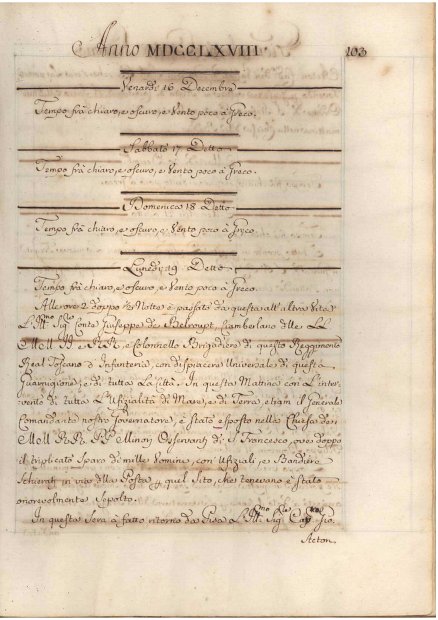 Anno MDCCLXVIII. 103
Venardì 16 Decembre
Tempo frà chiaro, e oscuro, e Vento poco à Greco.
Sabbato 17 Detto
Tempo frà chiaro, e oscuro, e Vento poco à Greco.
Domenica 18 Detto
Tempo frà chiaro, e oscuro, e Vento poco à Greco.
Lunedì 19 Detto
Tempo frà chiaro, e oscuro, e Vento poco à Greco.
Allerore 2 doppo Notte è passato da questa all'altra Vita
L'Ill.mo Sig. Conte Giuseppe de Belroupt, Ciamberlano delle LL.
MM. II. e RR. e Colonnello Brigadiere di questo Reggimento
Real Toscano d'Infanteria, con dispiacere Universale di questa
Guarnigione, e di tutta la Città. In questa Mattina con l'inter-
vento di tutta l'Ufizialità di Mare, e di Terra, etiam il Generale
Comandante nostro Governatore, è stato esposto nella Chiesa de
M. RR. PP. Minori Osservanti di S. Francesco, ove doppo
il triplicato sparo di mille Uomini, con Ufiziali, e Bandiere
schierati in vista della Posta, quel sito, che tenevano è stato
onorevolmente sepolto.
In questa Sera à fatto ritorno da Pisa L'Ill.mo Sig. Cav. Gio.
Acton.